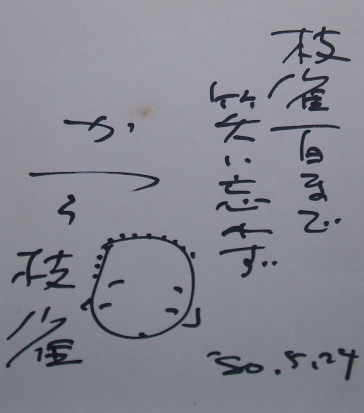 枝雀百まで
笑い忘れず
から
枝雀
'80.5.24